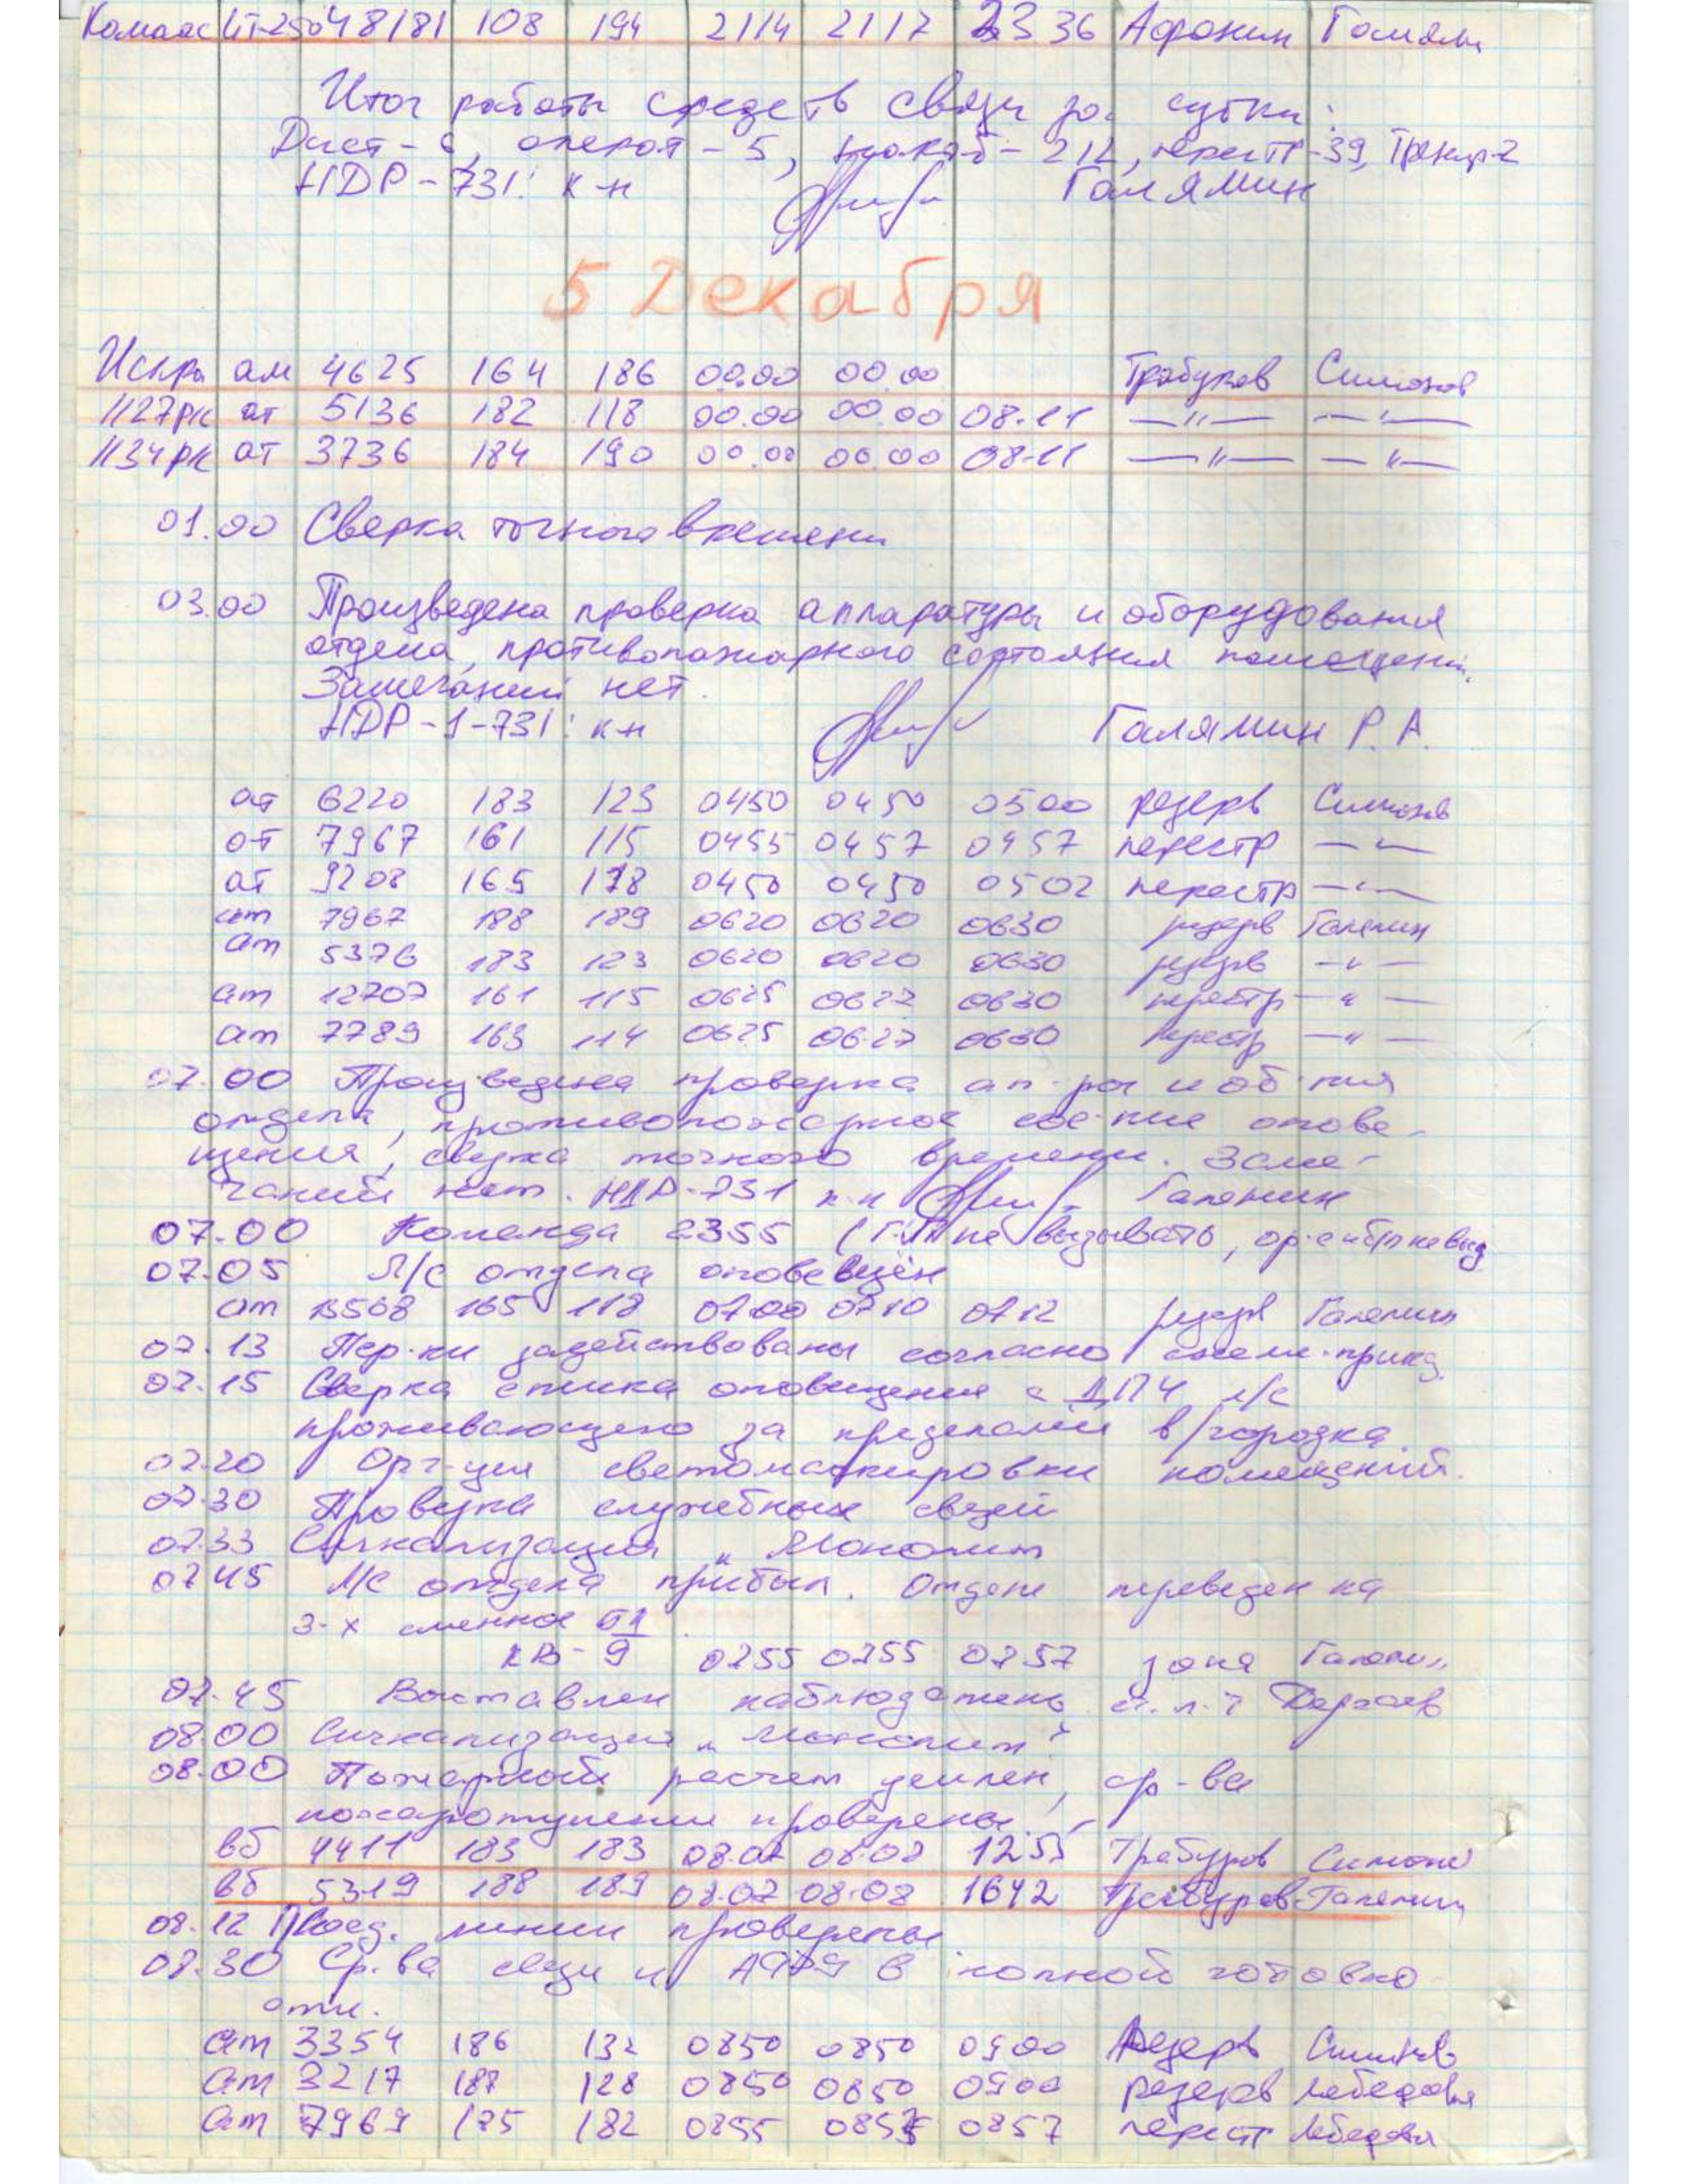 48/81 108 194 2114 2117 23 36 Афонин Галямин
Итог работы средств связи за сутки:
Дист - 6, операт - 5, - 212, перестр - 39, Тренир-2
НДР-731: к-н Галямин
5 Декабря
Искра ам 4625 164 186 00.00 00.00 Трабуров Симонов
1127рк ат 5136 182 118 00.00 00.00 08-11 —"— —"—
1134рк ат 3736 184 190 00.00 00.00 08-11 —"— —"—
01.00 Сверка точного времени
03.00 Произведена проверка аппаратуры и оборудования
отдела, противопожарного состояния помещений.
Замечаний нет.
НДР-1-731: к-н Галямин Р.А.
ат 6220 183 123 0450 0450 0500 резерв Симонов
ат 7967 161 115 0455 0457 0457 перестр —"—
ат 9208 165 178 0450 0450 0502 перестр —"—
ат 7967 188 189 0620 0620 0630 резерв Галямин
ат 5376 183 123 0620 0620 0630 резерв —"—
ат 12707 161 115 0625 0627 0630 перестр —"—
ат 7789 163 114 0625 0627 0630 перестр —"—
07.00 Произведена проверка ап-ры и об-ния
отдела, противопожарное сос-ние опове-
щения, сверка точного времени. Заме-
чаний нет. НДР-731 к-н Галямин
07.00 Команда 2355 ( не вызывать,
07.05 Л/с отдела оповещён
ат 13568 165 118 0700 0710 0712 резерв Галямин
07.13 Пер-ки задействованы согласно схеме-прик.
07.15 Сверка списка оповещения с ДПЧ л/с
проживающего за пределами в/городка.
07.20 Орг-ция светомаскировки помещений.
07.30 Проверка служебных связей
07.33 Сигнализация "Монолит
07.45 Л/С отдела прибыл. Отдел переведен на
3-х сменное БД
КВ-9 0755 0755 0757 зона Галямин
07.45 Выставлен наблюдатель
08.00 Сигнализация "Монолит"
08.00 Пожарный расчет усилен, ср-ва
пожаротушения проверены.
вб 4411 183 183 08.07 08.08 1255 Трабуров Симонов
вб 5319 188 189 08.07 08.08 1642 Трабуров Галямин
08.12 Проед. линии проверены
08.30 Ср-ва связи и в полной готовно
сти.
ат 3354 186 132 0850 0850 0900 Резерв Симонов
ат 3217 187 128 0850 0850 0900 резерв Лебедева
ат 7969 175 182 0855 0857 0857 перестр Лебедева